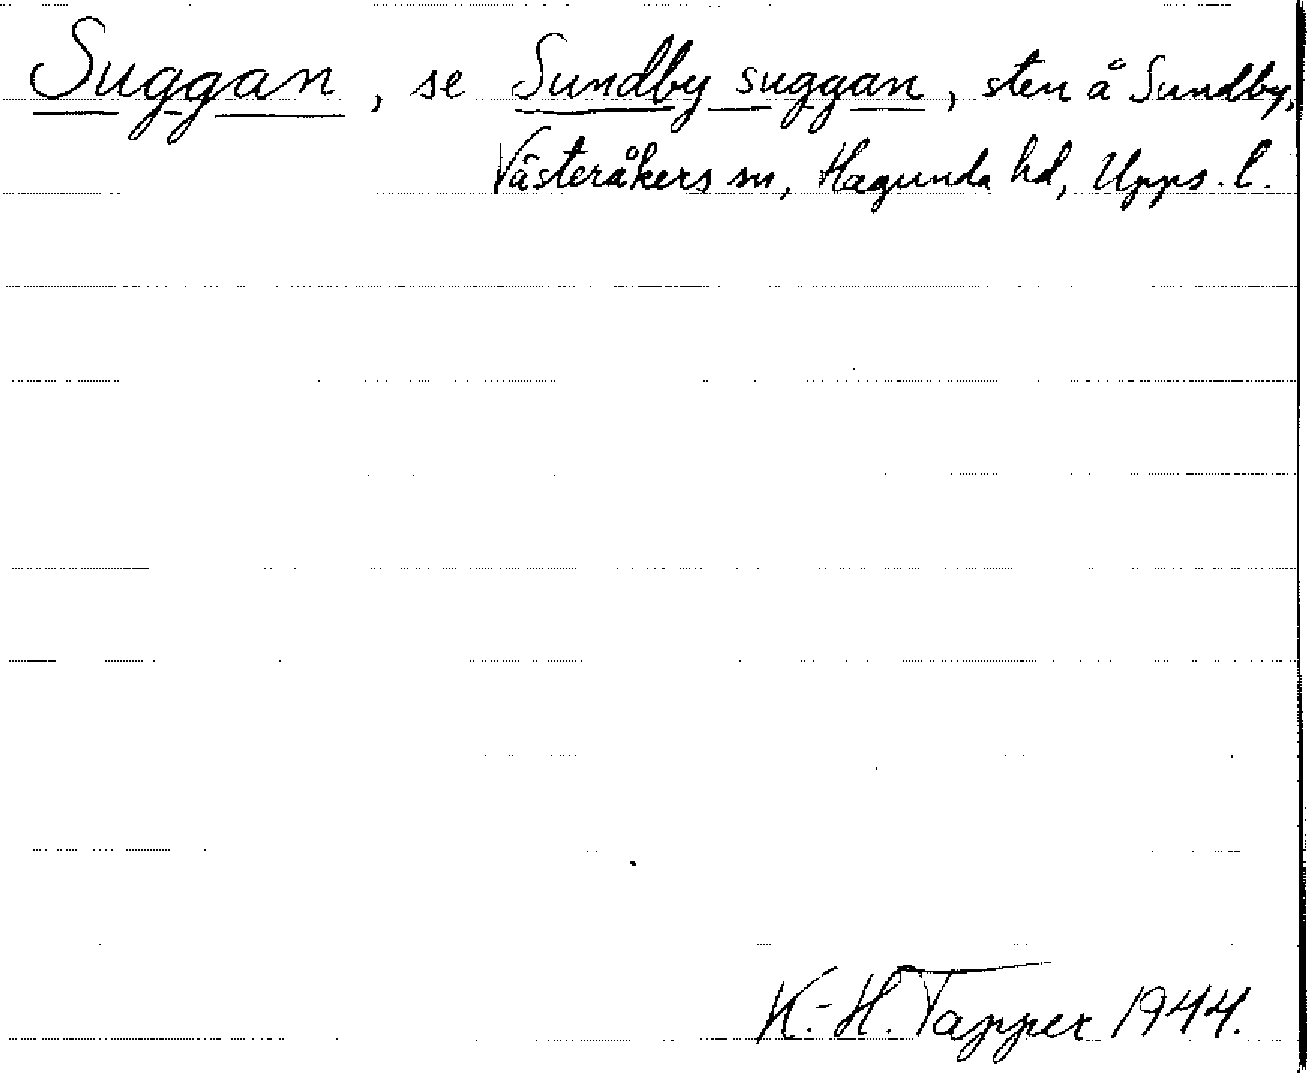 Suggan, se Sundby suggan, sten å Sundby,
Västeråkers sn, Hagunda hd, Upps. l.
K.-H. Tapper 1944.